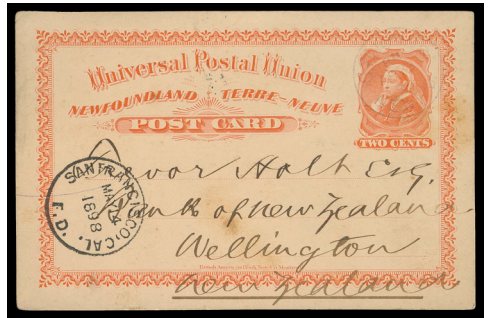 Universal Postal Union
NEWFOUNDLAND TERRE-NEUVE
POST CARD
TWO CENTS
SAN FRANCISCO, CAL.
1898
F.D.
Holt Esq.
Bank of New Zealand
Wellington
New Zealand